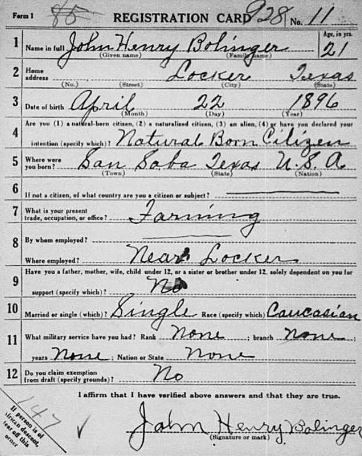 Form 1 88 REGISTRATION CARD 928 No. 11
1 Name in full John Henry Bolinger Age, in yrs. 21
(Given name) (Family name)
2 Home address Locker Texas
(No.) (Street) (City) (State)
3 Date of birth April 22 1896
(Month) (Day) (Year)
4 Are you (1) a natural-born citizen, (2) a naturalized citizen, (3) an alien, (4) or have you declared your
intention (specify which)? Natural Born Citizen
5 Where were you born? San Saba Texas U.S.A
(Town) (State) (Nation)
6 If not a citizen, of what country are you a citizen or subject?
7 What is your present trade, occupation, or office? Farming
8 By whom employed?
Where employed? Near Locker
9 Have you a father, mother, wife, child under 12, or a sister or brother under 12, solely dependent on you for
support (specify which)? No
10 Married or single (which)? Single Race (specify which)? Caucasian
11 What military service have you had? Rank None ; branch none
years None ; Nation or State None
12 Do you claim exemption from draft (specify grounds)? No
I affirm that I have verified above answers and that they are true.
147
If person is of
African descent,
tear off this
corner
John Henry Bolinger
(Signature or mark)